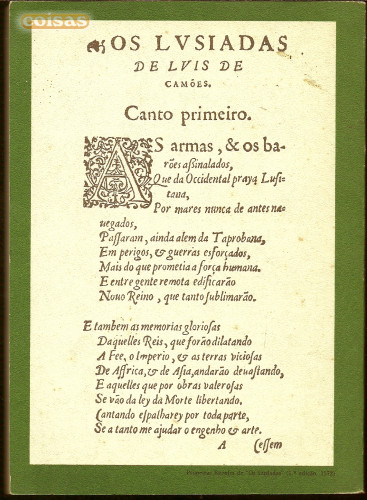 coisas
OS LVSIADAS
DE LVIS DE
CAMÕES.
Canto primeiro.
AS armas, & os ba-
rões aßinalados,
Que da Occidental praya Lusi-
tana,
Por mares nunca de antes na-
uegados,
Passaram, ainda alem da Taprobana,
Em perigos, & guerras esforçados,
Mais do que prometia a força humana.
E entre gente remota edificarão
Nouo Reino, que tanto sublimarão.
E tambem as memorias gloriosas
Daquelles Reis, que forão dilatando
A Fee, o Imperio, & as terras viciosas
De Affrica, & de Asia, andarão deuastando,
E aquelles que por obras valerosas
Se vão da ley da Morte libertando.
Cantando espalharey por toda parte,
Se a tanto me ajudar o engenho & arte.
A Cessem